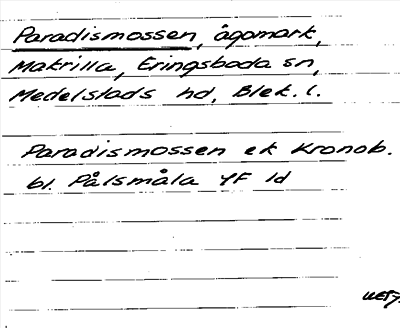 Paradismossen, ägomark,
Makrilla, Eringsboda sn,
Medelstads hd, Blek. l.
Paradismossen ek Kronob.
bl. Pålsmåla 4F 1d